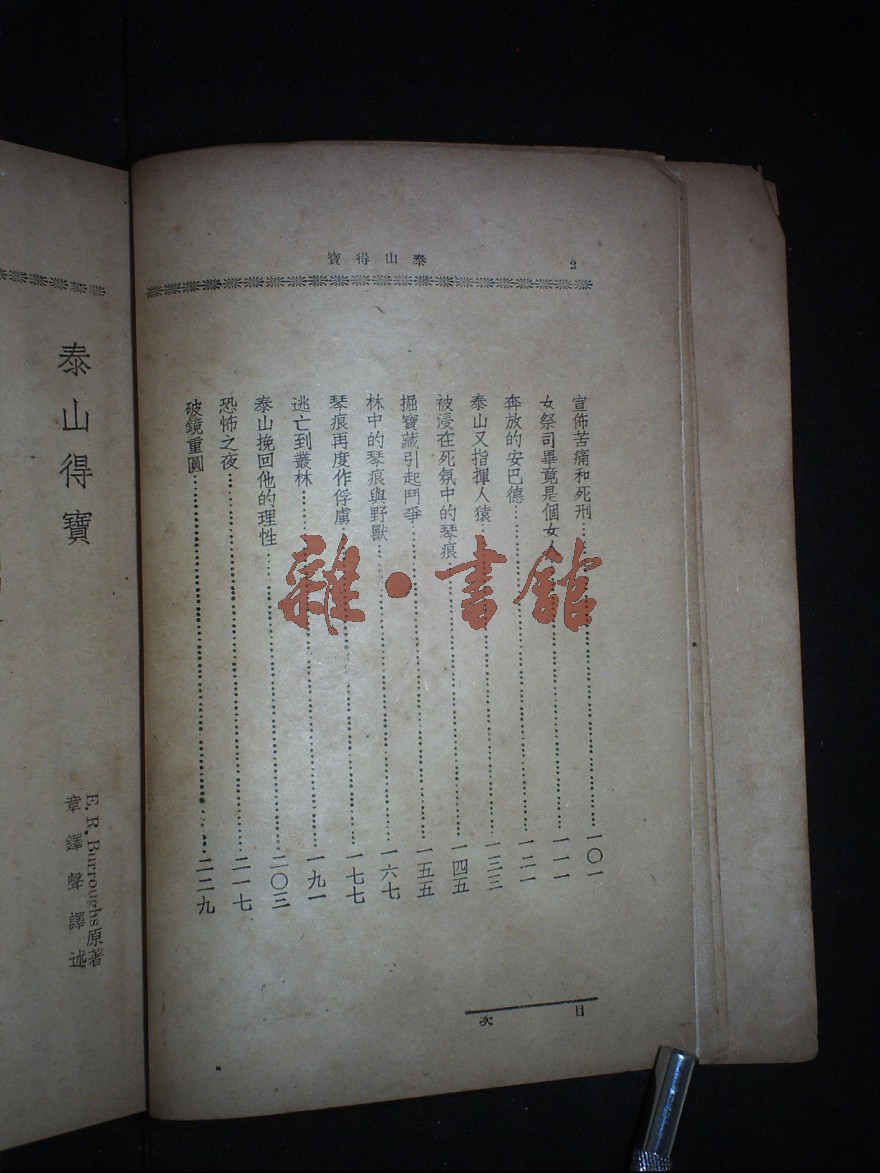 2
泰山得寶
宣佈苦痛和死刑……一〇一
女祭司畢竟是個女人……一一一
奔放的安巴德……一二一
泰山又指揮人猿……一三三
被浸在死氛中的琴痕……一四五
掘寶藏引起鬥爭……一五五
林中的琴痕與野獸……一六七
琴痕再度作俘虜……一七七
逃亡到叢林……一九一
泰山挽回他的理性……二〇三
恐怖之夜……二一七
破鏡重圓……二二九
目次
泰山得寶
E. R. Burroughs原著
章鐸聲譯述
雜·書館